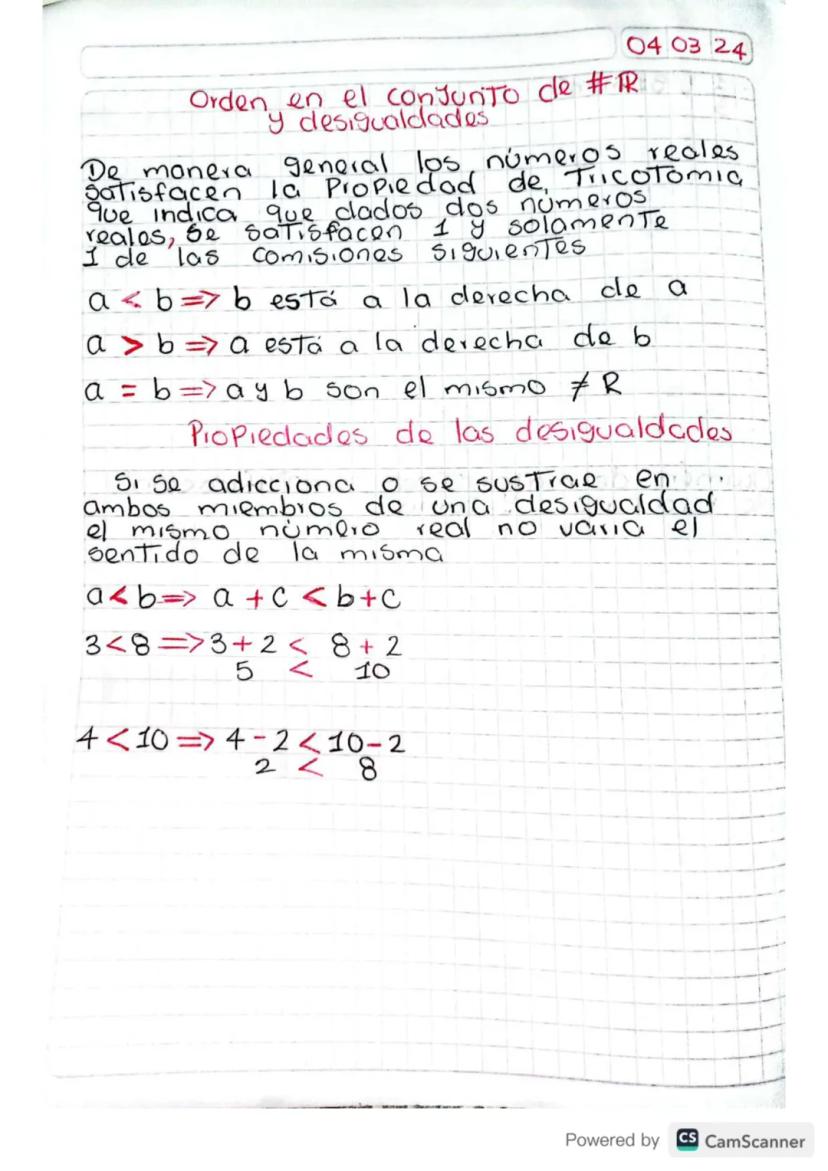 04 03 24
Orden en el conjunto de #ℝ
y desigualdades
De manera general los números reales
satisfacen la Propiedad de, Tricotomia
que indica que dados dos numeros
reales, se satisfacen 1 y solamente
1 de las comisiones siguientes
a < b => b está a la derecha de a
a > b => a está a la derecha de b
a = b => a y b son el mismo ≠ R
Propiedades de las desigualdades
Si se adicciona o se sustrae en
ambos miembros de una desigualdad
el mismo número real no varia el
sentido de la misma
a < b => a + c < b + c
3 < 8 => 3 + 2 < 8 + 2
5 < 10
4 < 10 => 4 - 2 < 10 - 2
2 < 8
Powered by CS CamScanner